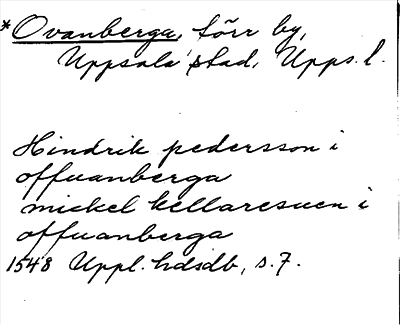 *Ovanberga, förr by,
Uppsala stad, Upps. l.
Hindrik pedersson i
offuanberga
mickel kellaresuen i
offuanberga
1548 Uppl. hdsdb, s. 7.